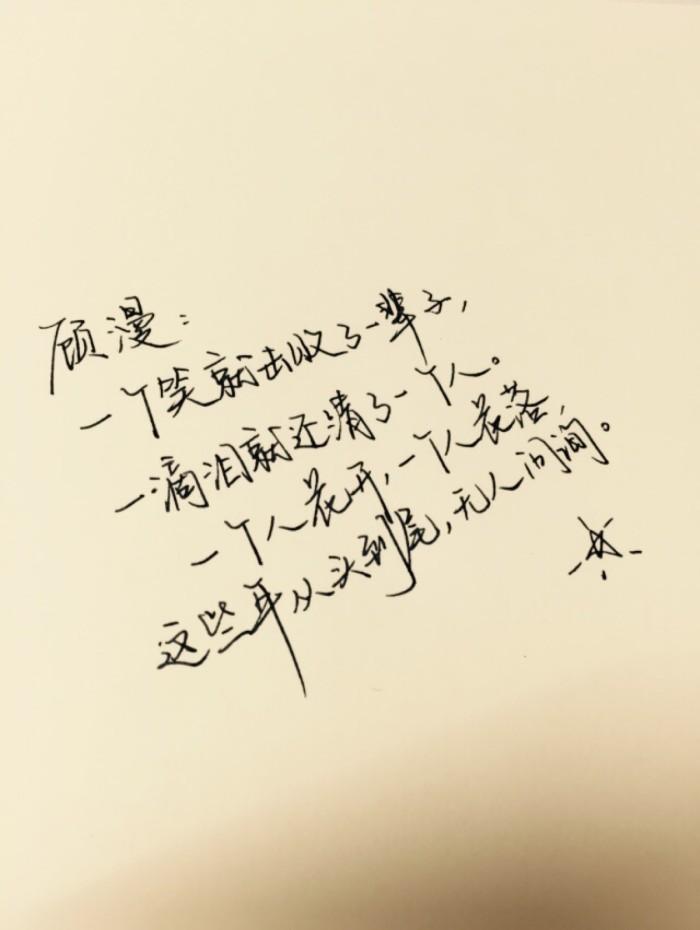 顾漫:
一个笑就击败了一辈子,
一滴泪就还清了一个人。
一个人花开,一个人花落,
这些年从头到尾,无人问询。